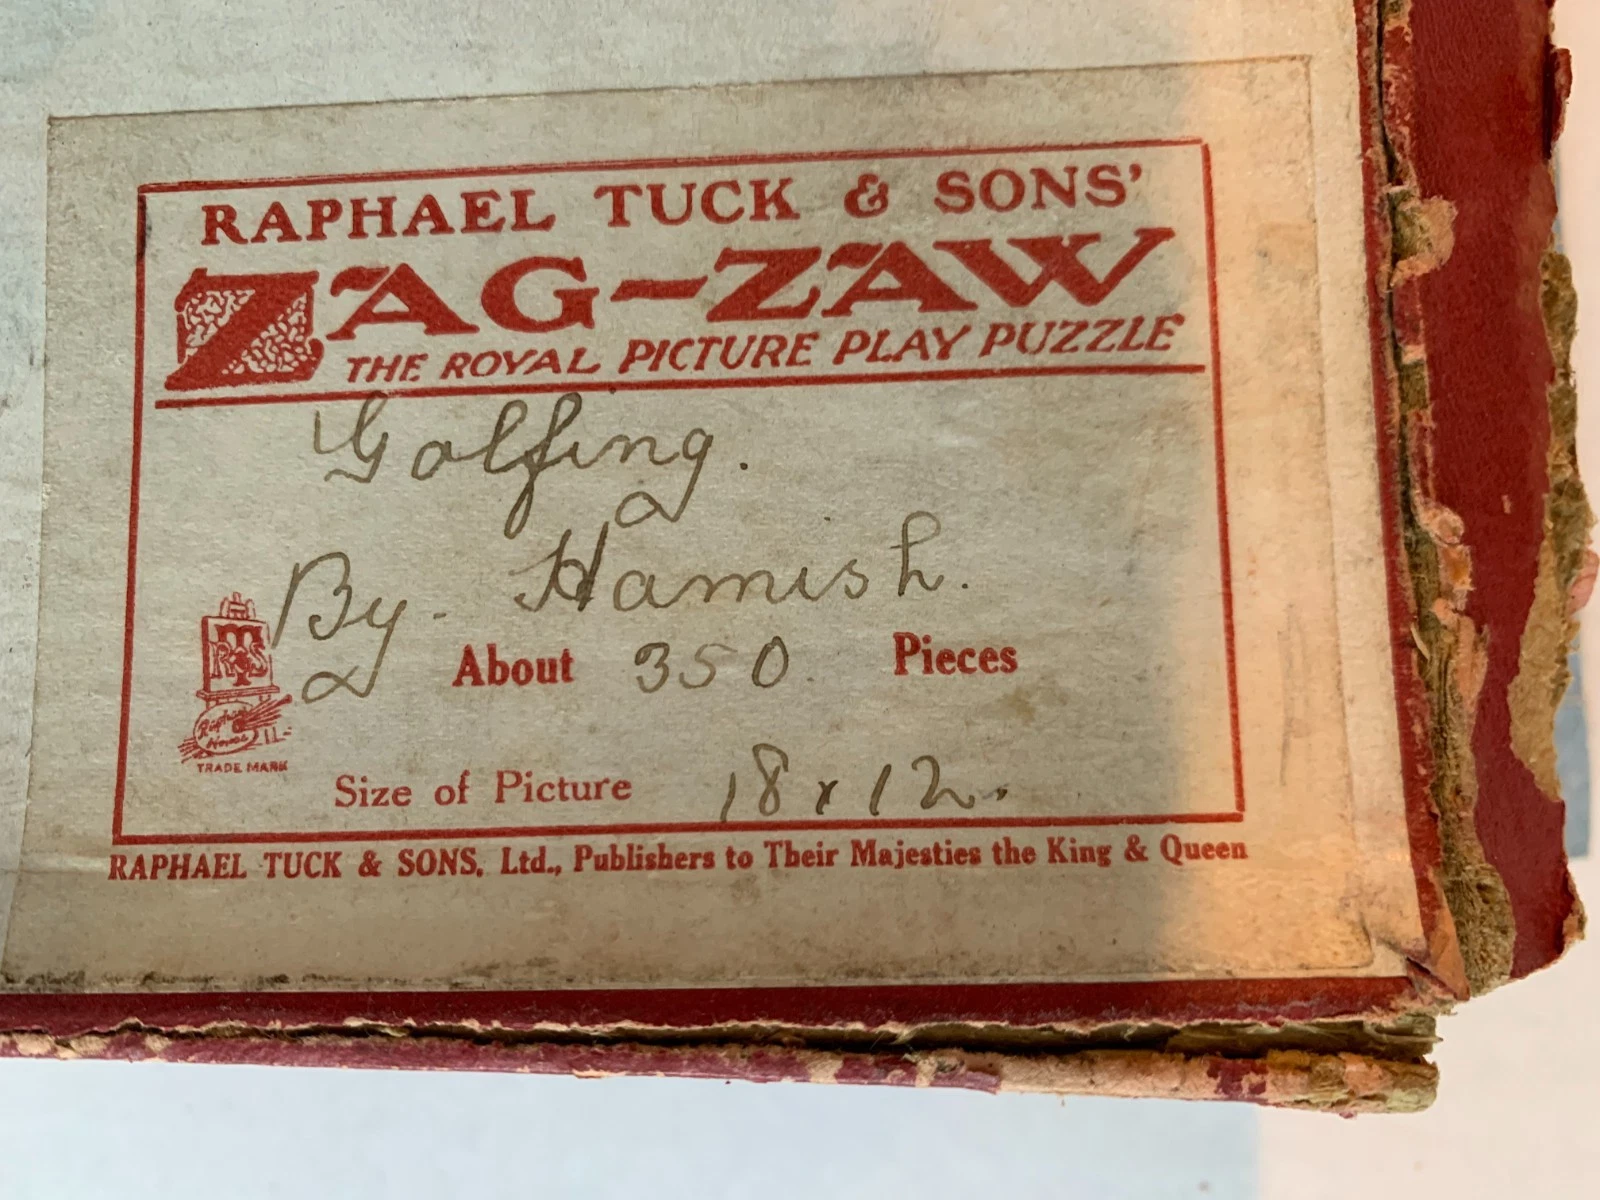 RAPHAEL TUCK & SONS'
ZAG-ZAW
THE ROYAL PICTURE PLAY PUZZLE
Golfing.
By. Hamish.
RTS
About 350. Pieces
Raphael House
TRADE MARK
Size of Picture 18 x 12.
RAPHAEL TUCK & SONS, Ltd., Publishers to Their Majesties the King & Queen